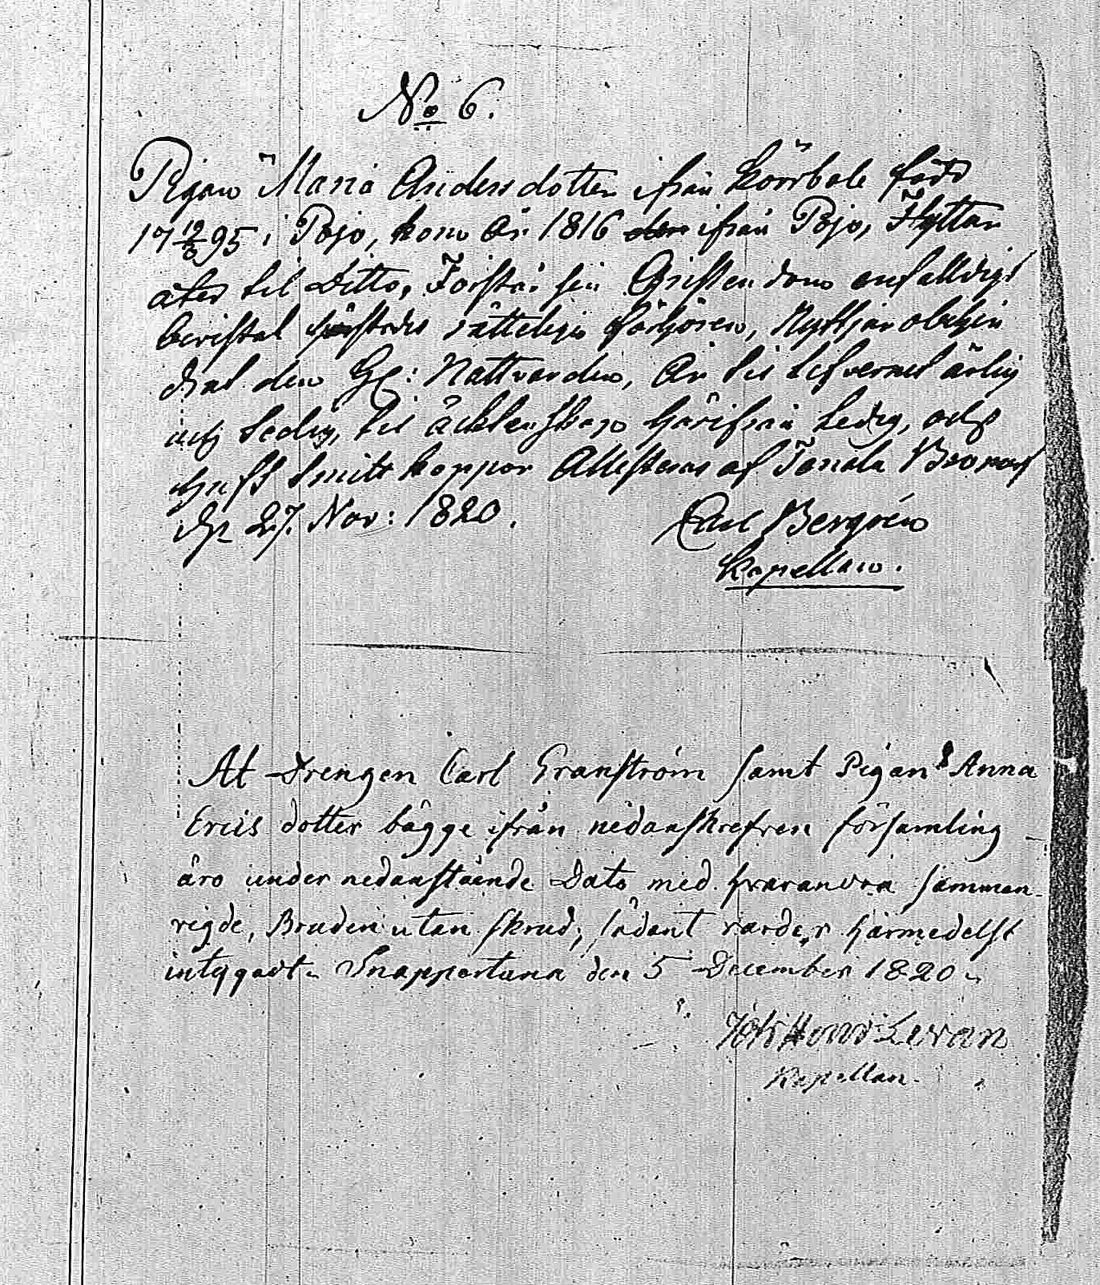 No 6.
Pigan Maria Andersdotter ifrån Körrbole född
17 12/3 95 i Pojo, kom År 1816 ifrån Pojo, Flyttar
åter til Ditto, Förstår sin Christendom enfalldigt
rätteligen Nyttjar obehin
drat den H: Nattvarden, Är til lefvernet ärlig
och Sedig, til äcktenskap härifrån Ledig, och
haft Smitt koppor Attesteras af Tenala Bromarf
d. 27. Nov: 1820.
Carl Bergrén
Kapellan.
At Drengen Carl Granström samt Pigan Anna
Erics dotter bägge ifrån nedanskrefven församling
äro under nedanstående Dato med hvarandra samman
vigde, Bruden utan skrud, sådant varder härmedelst
intygadt. Snappertuna den 5 December 1820.
Levan
Kapellan.